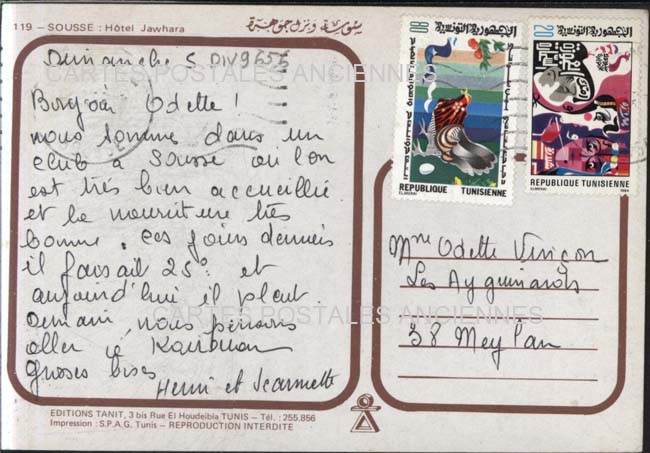 119 – SOUSSE : Hôtel Jawhara
سوسة نزل جوهرة
Dimanche 5
CARTES POSTALES ANCIENNES
Bonjour Odette !
nous sommes dans un
club à Sousse où l'on
est très bien accueilli
et la nourriture très
bonne. ces jours derniers
il faisait 25° et
aujourd'hui il pleut
CARTES POSTALES ANCIENNES
Demain, nous pensons
aller à Kairouan
Grosses bises
Henri et Jeannette
80
الجمهورية التونسية
REPUBLIQUE TUNISIENNE
20
الجمهورية التونسية
REPUBLIQUE TUNISIENNE
Mme Odette
Les Ayguinards
38 Meylan
EDITIONS TANIT, 3 bis Rue El Houdeibia TUNIS – Tél. : 255.856
Impression : S.P.A.G. Tunis – REPRODUCTION INTERDITE